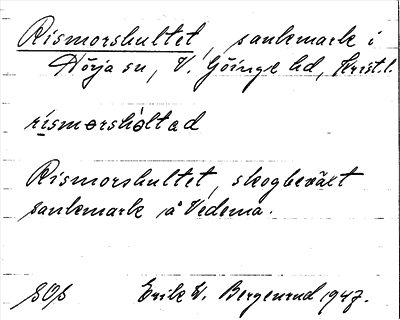 Rismorshultet, sankmark i
Hörja sn, V. Göinge hd, Krist. l.
rismərshəltad
Rismorshultet, skogbeväxt
sankmark å Vedema.
Erik W. Bergenrud 1947.